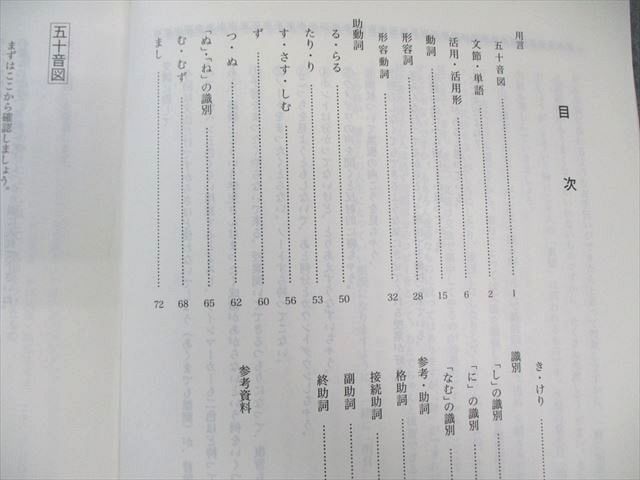 目次
用言
五十音図 1
文節・単語 2
活用・活用形 6
動詞 15
形容詞 28
形容動詞 32
助動詞
る・らる 50
たり・り 53
す・さす・しむ 56
ず 60
つ・ぬ 62
「ぬ」「ね」の識別 65
む・むず 68
まし 72
き・けり
識別
「し」の識別
「に」の識別
「なむ」の識別
参考・助詞
格助詞
接続助詞
副助詞
終助詞
参考資料
五十音図
まずはここから確認しましょう。